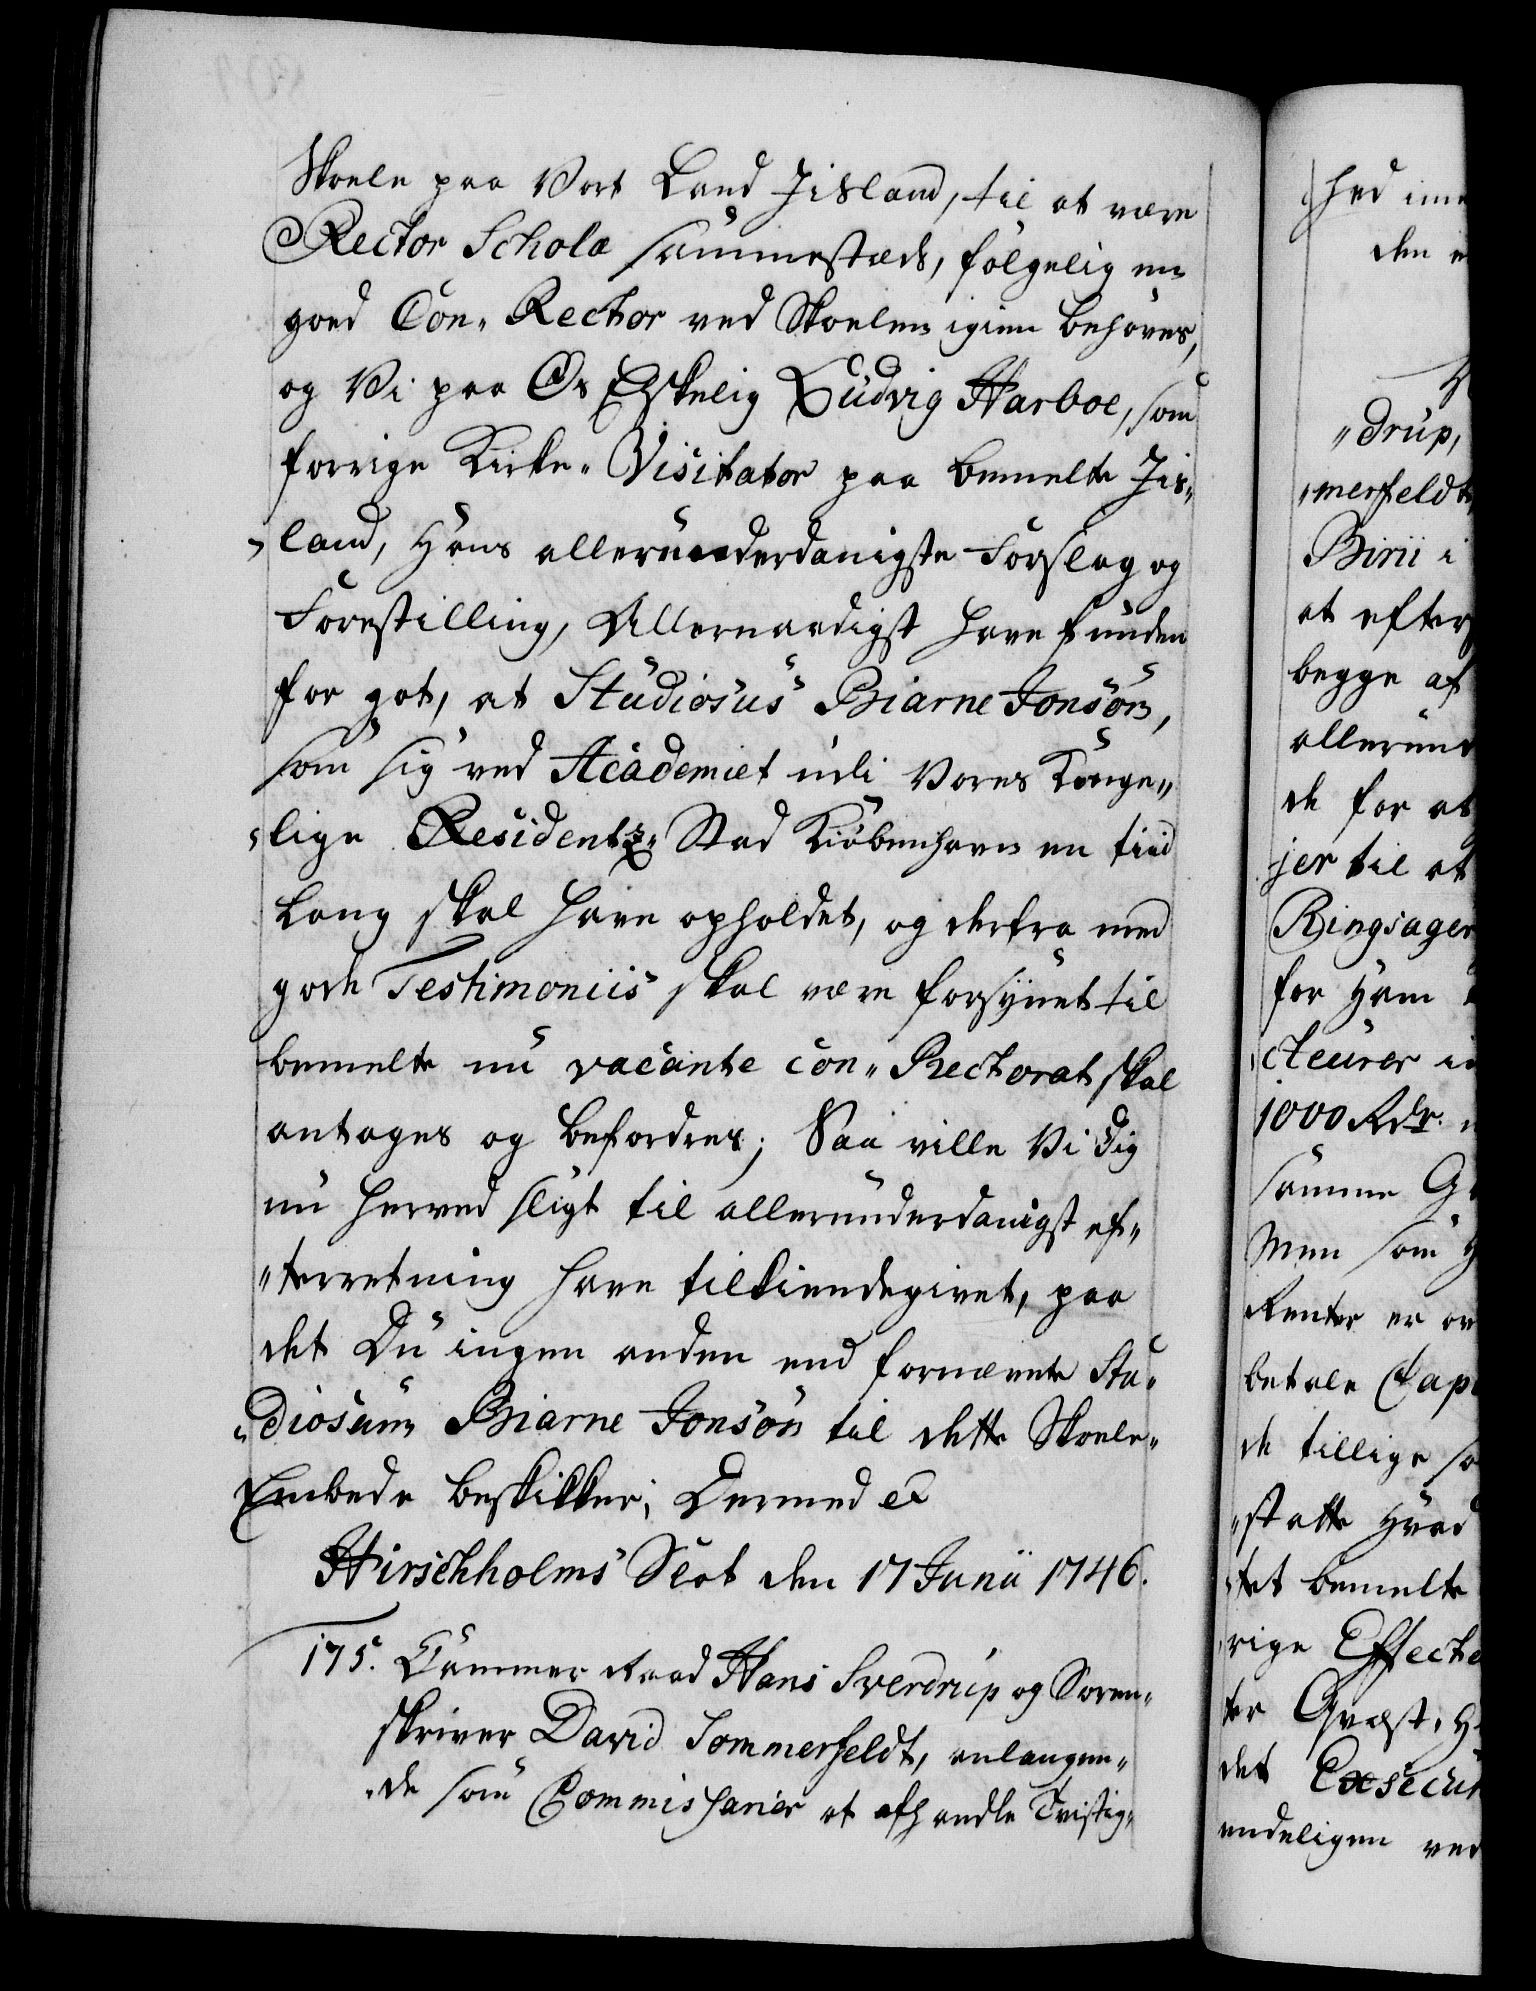 Skoele paa Vort Land Jisland, til at være
Rector Scholæ sammestæds, følgelig en
goed Con„ Rector ved Skoelen igien behøves,
og Vi paa Os Elskelig Ludvig Harboe, som
forrige Kirke„ Visitator paa bemelte Jis„
„land, Hans allerunderdanigste Forslag og
Forestilling, Allernaadigst have funden
for got, at Studiosus Biarne Jonsøn,
som sig ved Academiet udi Vores Konge„
„lige Residentz„ Stad Kiøbenhavn en tiid
lang skal have opholdet, og derfra med
gode Testimoniis skal være forsÿnet til
bemelte nu vacante Con„ Rectorat skal
antages og befordres; Saa ville Vi dig
nu herved sligt til allerunderdanigst ef„
„terretning have tilkiendegivet, paa
det Du ingen anden end fornævnte Stu„
„diosum Biarne Jonsøn til dette Skoele„
Embede beskikker; Dermed &
Hirschholms Slot den 17 Junii 1746.
175. Cammer Raad Hans Sverdrup og Soren„
skriver David Sommerfeldt, anlangen„
„de som Commissarier at afhandle Tvistig„
hed
den
„drup,
„merfeldt
Birii i
at efter
begge af
allerund
de for at
jer til at
Ringsager
for Ham
cteurer
1000 Rdr.
samme
Men som
Renter er
betale Cap
de tillige
„statte Hvad
„tet bemelte
„rige Effecte
ter Qvæst,
det Exsecut
endeligen ved